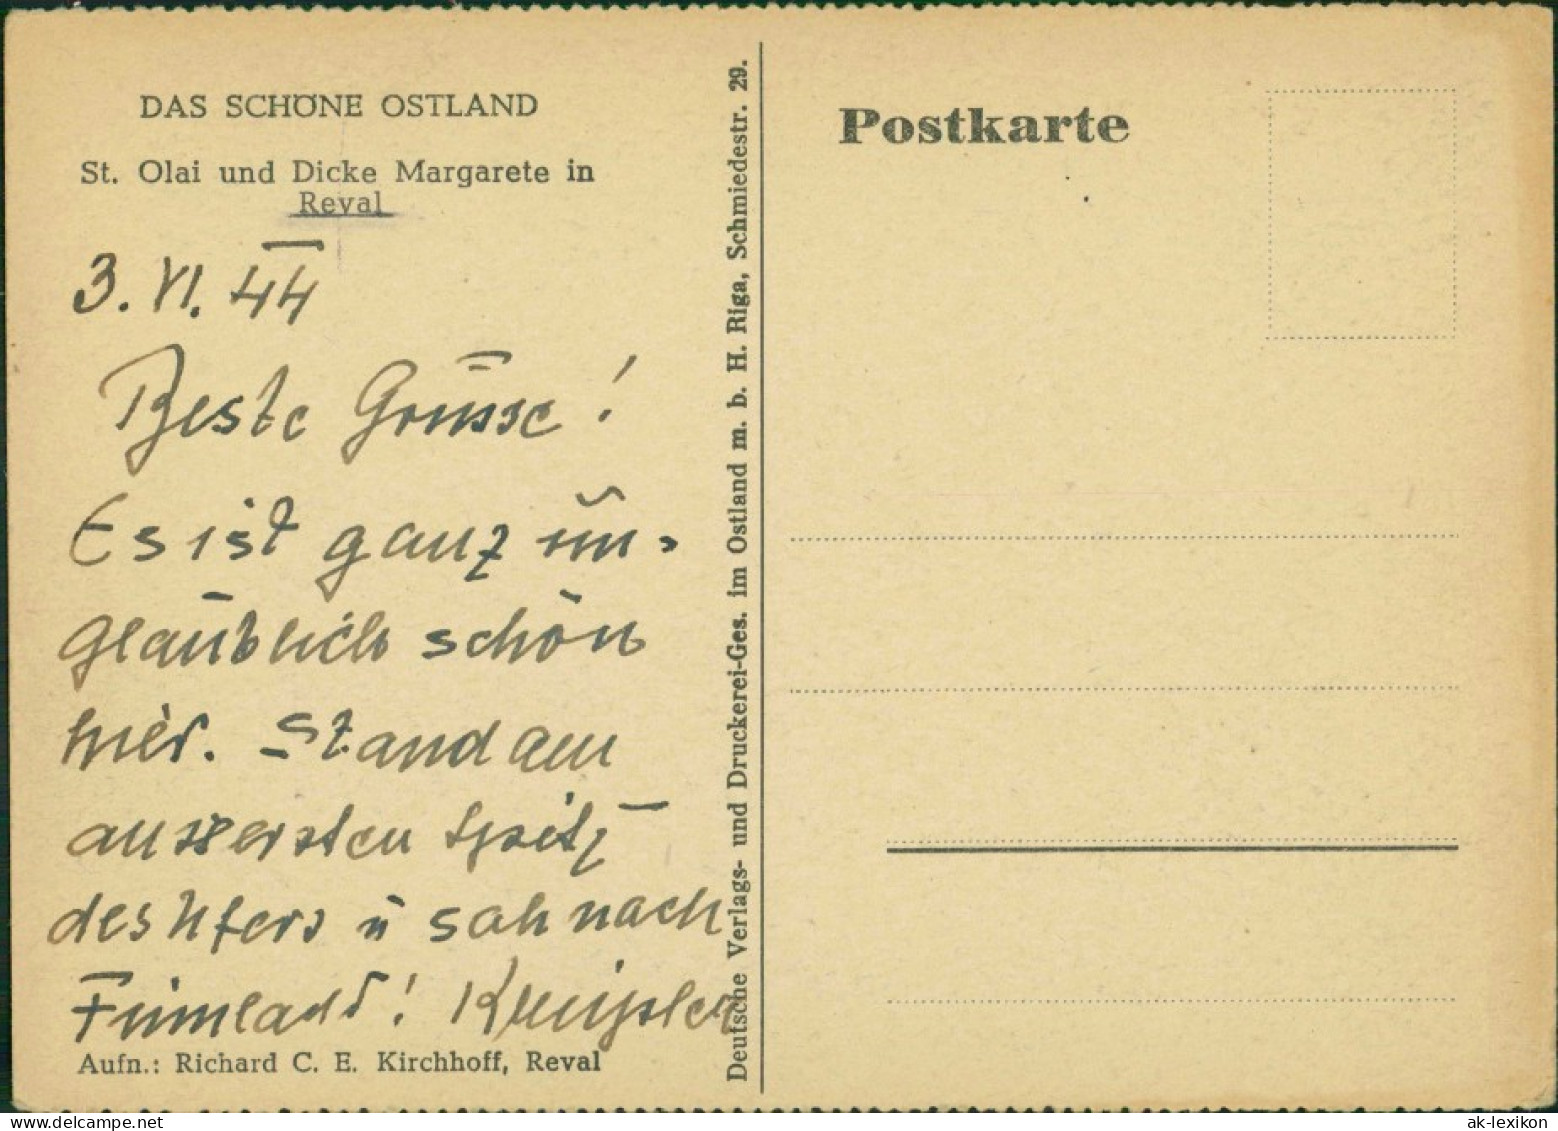 DAS SCHÖNE OSTLAND
St. Olai und Dicke Margarete in
Reval
3. VI. 44
Beste Grüsse!
Es ist ganz un-
glaublich schön
hier. Stand am
aussersten Spitz
des Ufers u sah nach
Finnland!
Aufn.: Richard C. E. Kirchhoff, Reval
Deutsche Verlags- und Druckerei-Ges. im Ostland m. b. H. Riga, Schmiedestr. 29.
Postkarte
ak-lexikon